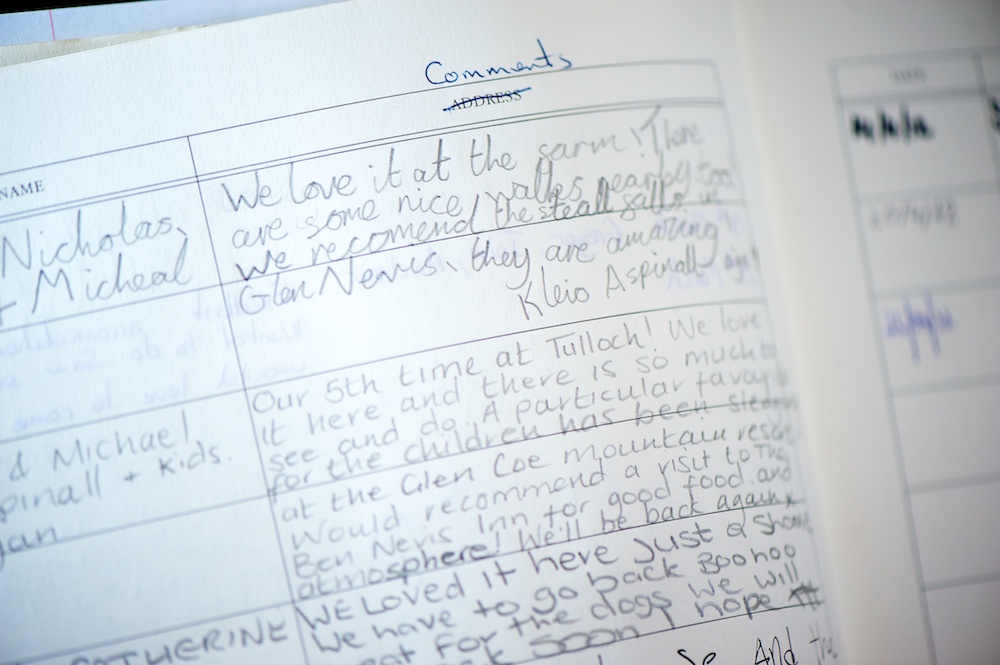 Comments
ADDRESS
NAME
Nicholas,
+ Micheal
We love it at the sarm! There
are some nice walkes nearby too!
we recomend the steall salls in
Glen Nevis, they are amazing
Kleio Aspinall age
& Michael
pinall + Kids.
gan
Our 5th time at Tulloch! We love
it here and there is so much to
see and do. A particular
for the children has been
at the Glen Coe mountain
Would recommend a visit to The
Ben Nevis Inn for good food and
atmosphere! We'll be back again x
CATHERINE
WE LOVED it here Just a Shame
We have to go back Boohoo
for the dogs we will
soon I hope
And